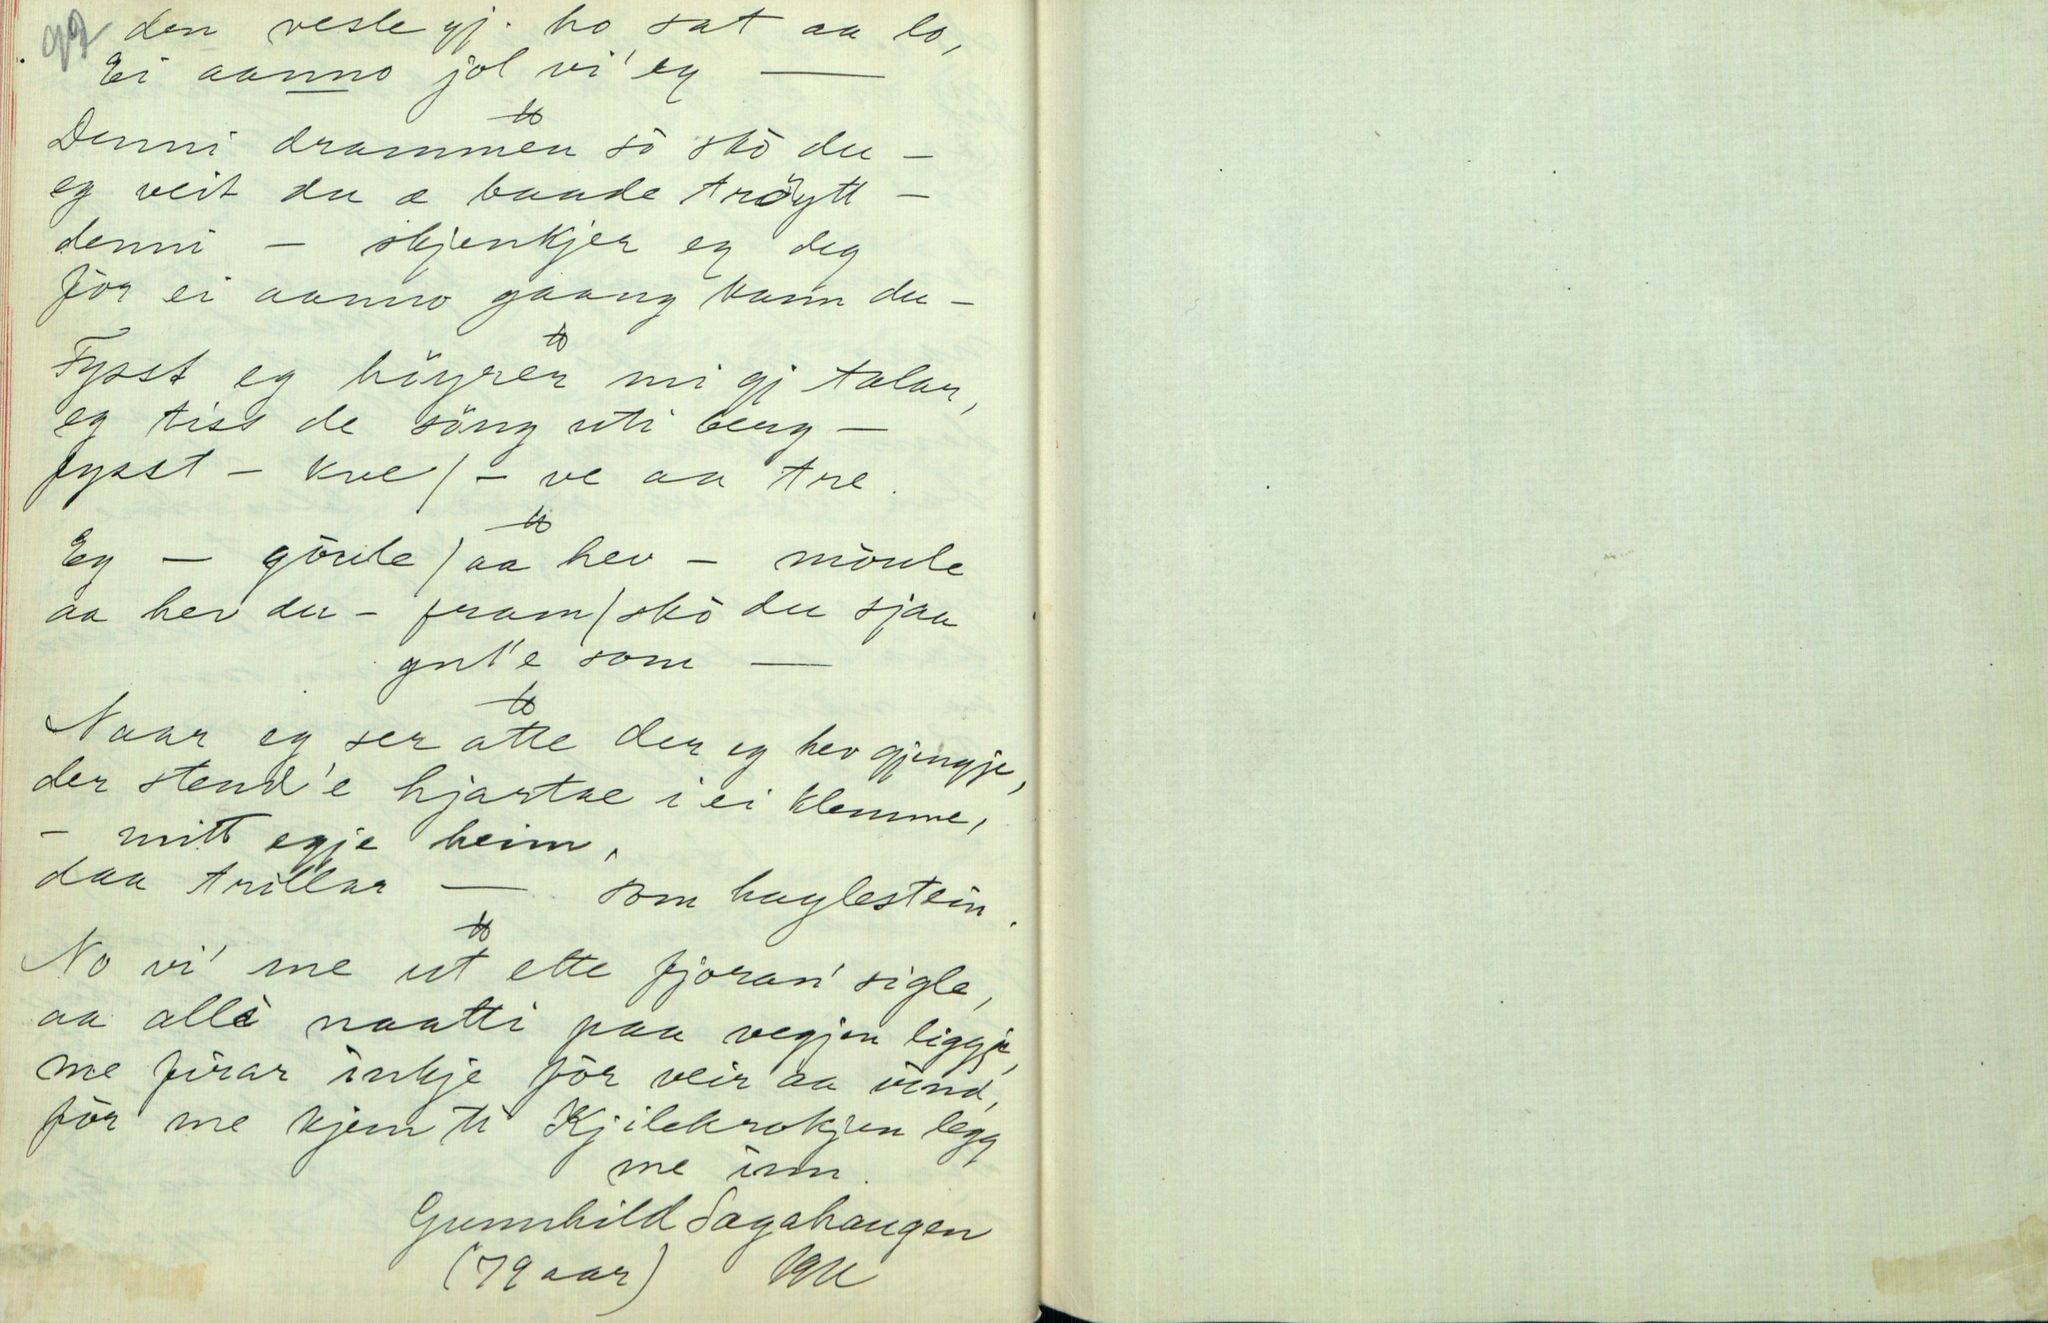 99 den vesle gj. ho sat aa lo,
Ei aanno jol vi' eg —
Denni drammen so skò du –
eg veit du æ baade tröytt –
denni – skjenkjer eg deg
fòr ei aanno gaang kann du –
Fysst eg höyrer mi gj talar,
eg tiss de söng uti berg –
fysst – kve / – ve aa tre.
Eg – gòule / aa hev – mòule
aa hev du – fram / skò du sjaa
gut'e som —
Naar eg ser atte der eg hev gjengje,
der stend'e hjartae i ei klemme,
– mitt egje heim,
daa trillar — som haglestein.
No vi' me ut ette fjoran' sigle,
aa allè naatti paa vegjen liggje,
me firar inkje fòr veir aa vind,
fòr me kjem ti Kjilekrokjen legg
me inn.
Gunnhild Sagahaugen
(79 aar)